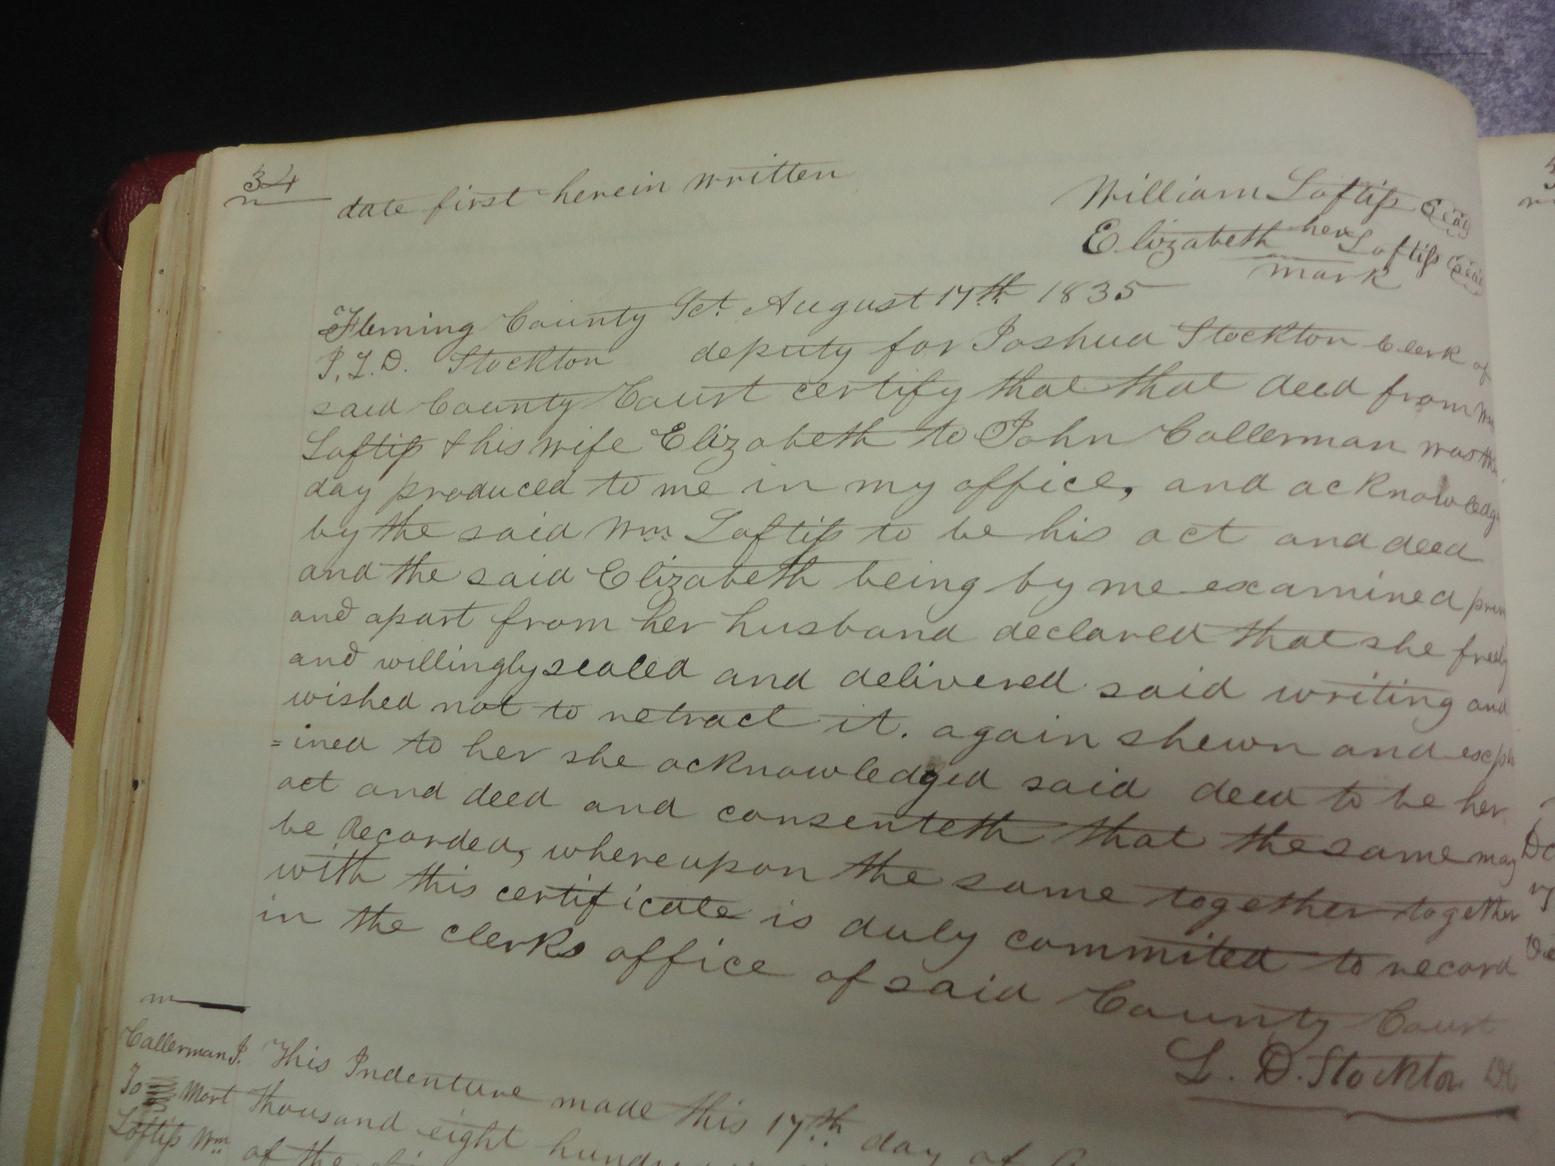 34
date first herein written
William Loftis Seal
Elizabeth her Loftis Seal
mark
Fleming County Sct. August 17th 1835
I, L. D. Stockton deputy for Joshua Stockton Clerk of
said County Court certify that that deed from Wm
Loftis & his wife Elizabeth to John Callerman was this
day produced to me in my office, and acknowledg
by the said Wm. Loftis to be his act and deed
and the said Elizabeth being by me examined priv
and apart from her husband declared that she freely
and willingly sealed and delivered said writing and
wished not to retract it. again shewn and expla
=ined to her she acknowledged said deed to be her
act and deed and consenteth that the same may
be Recorded, whereupon the same together together
with this certificate is duly commited to record
in the clerks office of said County Court
L. D. Stockton DC
Callerman J.
To Mort
Loftis Wm
This Indenture made this 17th day of
thousand eight
of the